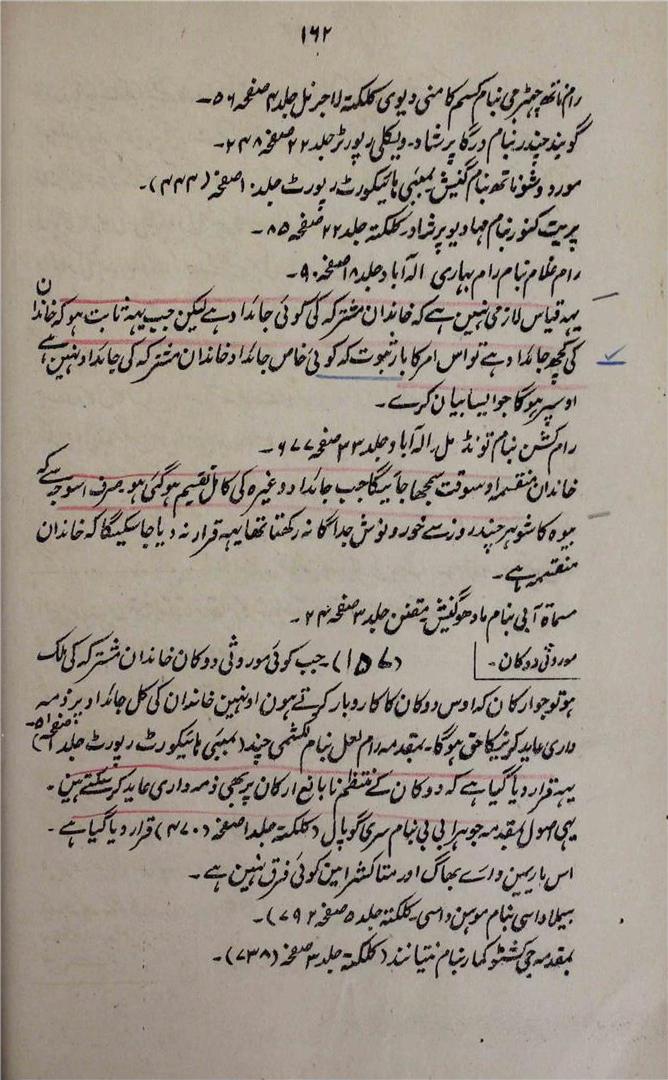 ۱۶۲
رام ناتھ چٹرجی بنام کسم کامنی دیوی کلکتہ لا جرنل جلد ۴ صفحہ ۵۶۔
گوبند چندر بنام درگا پرشاد۔ ویکلی رپورٹر جلد ۲۲ صفحہ ۲۴۸۔
مورو وشوناتھ بنام گنیش بمبئی ہائیکورٹ رپورٹ جلد ۱۰ صفحہ (۴۴۴)۔
پریت کنور بنام مہادیو پرشاد کلکتہ جلد ۲۲ صفحہ ۸۵۔
رام غلام بنام رام بہاری الہ آباد جلد ۱۸ صفحہ ۹۰۔
یہہ قیاس لازمی نہیں ہے کہ خاندان مشترکہ کی کوئی جائداد ہے لیکن جب یہہ ثابت ہو کہ خاندان
کی کچھ جائداد ہے تو اس امر کا بار ثبوت کہ کوئی خاص جائداد خاندان مشترکہ کی جائداد نہیں ہے
اوسپر ہوگا جو ایسا بیان کرے۔
رام کشن بنام ٹونڈ مل الہ آباد جلد ۳۳ صفحہ ۶۷۷۔
خاندان منقسمہ اوسوقت سمجھا جائیگا جب جائداد وغیرہ کی کامل تقسیم ہو گئی ہو۔ صرف اسوجہ سے کہ
بیوہ کا شوہر چند روز سے خور و نوش جداگانہ رکھتا تھا یہہ قرار نہ دیا جا سکیگا کہ خاندان
منقسمہ ہے۔
مسماۃ آبی بنام مادھو گنیش متفنن جلد ۳ صفحہ ۲۴۔
موروثی دوکان۔ (۱۵۷)۔ جب کوئی موروثی دوکان خاندان مشترکہ کی ملک
ہو تو جو ارکان کہ اوس دوکان کا کاروبار کرتے ہون اونہین خاندان کی کل جائداد پر ذمہ
داری عاید کرنیکا حق ہوگا۔ بمقدمہ رام لعل بنام لکشمی چند (بمبئی ہائیکورٹ رپورٹ جلد ۱ صفحہ ۵۱)
یہہ قرار دیا گیا ہے کہ دوکان کے منتظم نابالغ ارکان پر بھی ذمہ داری عاید کر سکتے ہین۔
یہی اصول بمقدمہ جوہرا بی بی بنام سری گوپال (کلکتہ جلد ۱ صفحہ (۴۷۰) قرار دیا گیا ہے۔
اس بارہ مین دائے بھاگ اور متاکشرا مین کوئی فرق نہین ہے۔
بیملا داسی بنام موہن داسی۔ کلکتہ جلد ۵ صفحہ ۷۹۲)۔
بمقدمہ جی کشٹو کمار بنام نتیانند (کلکتہ جلد ۳ صفحہ (۷۳۸)۔